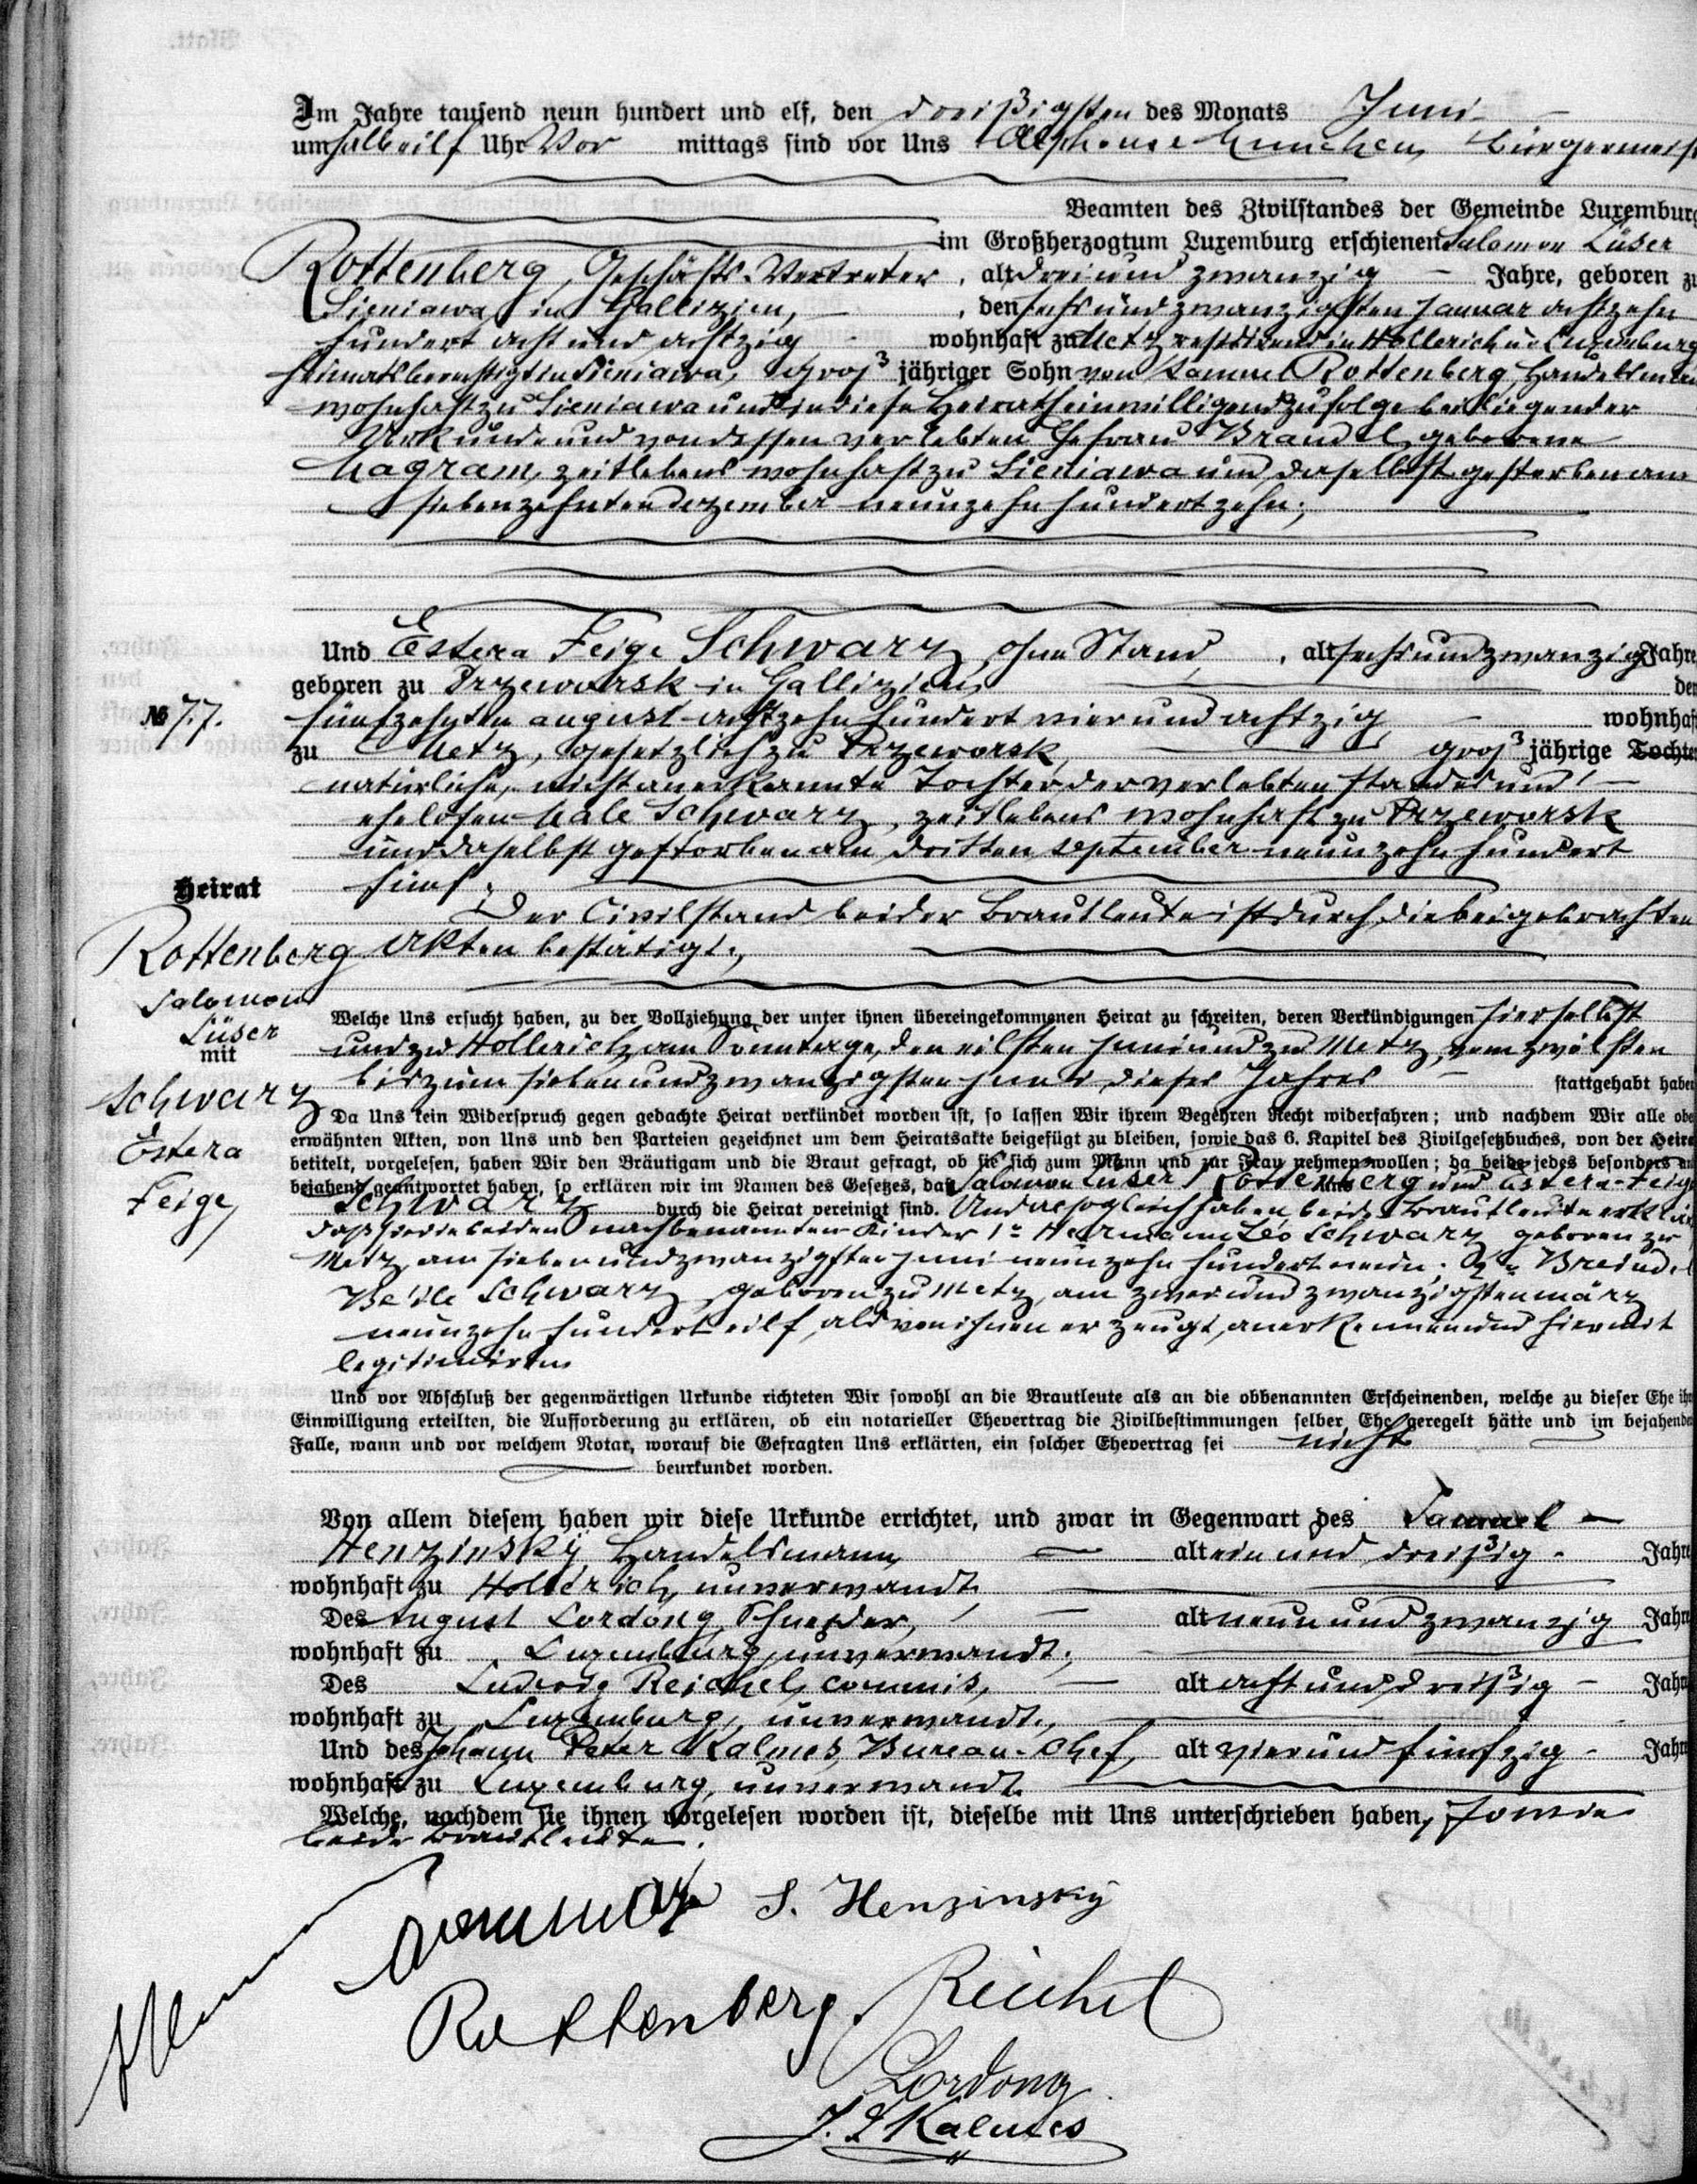 Im Jahre tausend neun hundert und elf, den dreißigsten des Monats Juni
um halb eilf Uhr Vor mittags sind vor Uns Alphonse Munchen, Bürgermeis
Beamten des Zivilstandes der Gemeinde Luxemburg
im Großherzogtum Luxemburg erschienen Salomon Lüser
Rottenberg, Geschäfts-Vertreter, alt dreiundzwanzig Jahre, geboren zu
Sieniawa in Gallizien, den sechsundzwanzigsten Januar achtzehn
hundert acht und achtzig wohnhaft zu Metz residirend in Hollerich u. Luxemburg
heimatsberechtigt in Sieniawa, groß jähriger Sohn von Samuel Rottenberg, Handelsmann
wohnhaft zu Sieniawa und in diese Heirat einwilligend zufolge beiliegender
Urkunde und von dessen verlebten Ehefrau Brandel geborene
Magram, zeitlebens wohnhaft zu Sieniawa und daselbst gestorben am
siebenzehnten Dezember neunzehnhundert zehn;
Und Estera Feige Schwarz, ohne Stand, alt sechsundzwanzig Jahre
geboren zu Przeworsk in Gallizien, den
№ 77.
fünfzehnten august achtzehnhundert vierundachtzig, wohnhaft
zu Metz, gesetzlich zu Przeworsk, groß jährige Tochter
natürliche, nicht anerkannte Tochter der verlebten standes und
ehelosen Male Schwarz, zeitlebens wohnhaft zu Przeworsk
und daselbst gestorben am dritten september neunzehnhundert
fünf;
Heirat
Der Civilstand beider Brautleute ist durch die beigebrachten
Akten bestätigt;
Rottenberg
Salomon
Lüser
mit
Schwarz
Estera
Feige
Welche Uns ersucht haben, zu der Vollziehung der unter ihnen übereingekommenen Heirat zu schreiten, deren Verkündigungen hierselbst
und zu Hollerich am Sonntage, den eilften Juni und zu Metz, vom zwölften
bis zum siebenundzwanzigsten Juni dieses Jahres stattgehabt haben
Da Uns kein Widerspruch gegen gedachte Heirat verkündet worden ist, so lassen Wir ihrem Begehren Recht widerfahren; und nachdem Wir alle obe
erwähnten Akten, von Uns und den Parteien gezeichnet um dem Heiratsakte beigefügt zu bleiben, sowie das 6. Kapitel des Zivilgesetzbuches, von der Heira
betitelt, vorgelesen, haben Wir den Bräutigam und die Braut gefragt, ob sie sich zum Mann und zur Frau nehmen wollen; da beide jedes besonders und
bejahend geantwortet haben, so erklären wir im Namen des Gesetzes, daß Salomon Lüser Rottenberg und Estera-Feige
Schwarz durch die Heirat vereinigt sind. Und alsogleich haben beide Brautleute erklär
daß sie die beiden nachbenannten Kinder 1° Hermann Léo Schwarz geboren zu
Metz, am siebenundzwanzigsten Juni neunzehnhundert neun; 2° Breindel
Beile Schwarz, geboren zu Metz, am zweiundzwanzigsten märz
neunzehnhundert eilf, als von ihnen erzeugt, anerkennen und hiermit
legitimiren
Und vor Abschluß der gegenwärtigen Urkunde richteten Wir sowohl an die Brautleute als an die obbenannten Erscheinenden, welche zu dieser Ehe ihr
Einwilligung erteilten, die Aufforderung zu erklären, ob ein notarieller Ehevertrag die Zivilbestimmungen selber Ehe geregelt hätte und im bejahenden
Falle, wann und vor welchem Notar, worauf die Gefragten Uns erklärten, ein solcher Ehevertrag sei nicht
beurkundet worden.
Von allem diesem haben wir diese Urkunde errichtet, und zwar in Gegenwart des Samuel
Henzinsky Handelsmann, alt ein und dreißig Jahre
wohnhaft zu Hollerich, unverwandt
Des August Lordong, Schneider, alt neun und zwanzig Jahre
wohnhaft zu Luxemburg, unverwandt;
Des Ludwig Reichel, commis, alt acht und dreißig Jahre
wohnhaft zu Luxemburg, unverwandt,
Und des Johann Peter Kalmes, Bureau-Chef, alt vier und fünfzig Jahre
wohnhaft zu Luxemburg, unverwandt
Welche, nachdem sie ihnen vorgelesen worden ist, dieselbe mit Uns unterschrieben haben, sowie
beide Brautleute.
S. Henzinsky
Rottenberg. Reichel
Lordong
J. P Kalmes